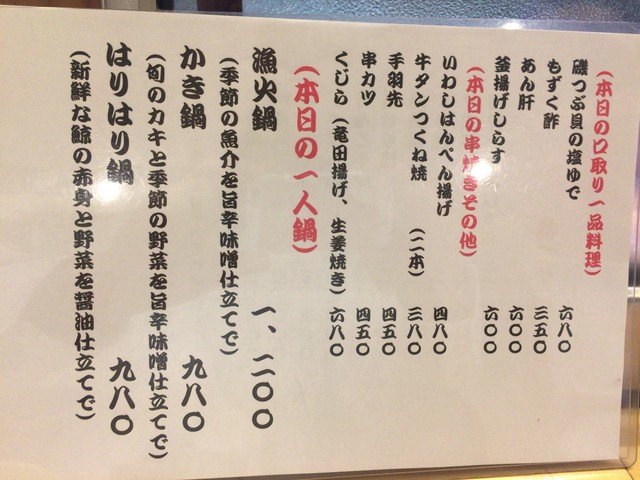 (本日の口取り一品料理)
磯つぶ貝の塩ゆで 六八〇
もずく酢 三五〇
あん肝 六〇〇
釜揚げしらす 六〇〇
(本日の串焼きその他)
いわしはんぺん揚げ 四八〇
牛タンつくね焼 (二本) 三八〇
手羽先 四五〇
串カツ 四五〇
くじら (竜田揚げ、生姜焼き) 六八〇
(本日の一人鍋)
漁火鍋 一、二〇〇
(季節の魚介を旨辛味噌仕立てで)
かき鍋 九八〇
(旬のカキと季節の野菜を旨辛味噌仕立てで)
はりはり鍋 九八〇
(新鮮な鯨の赤身と野菜を醤油仕立てで)